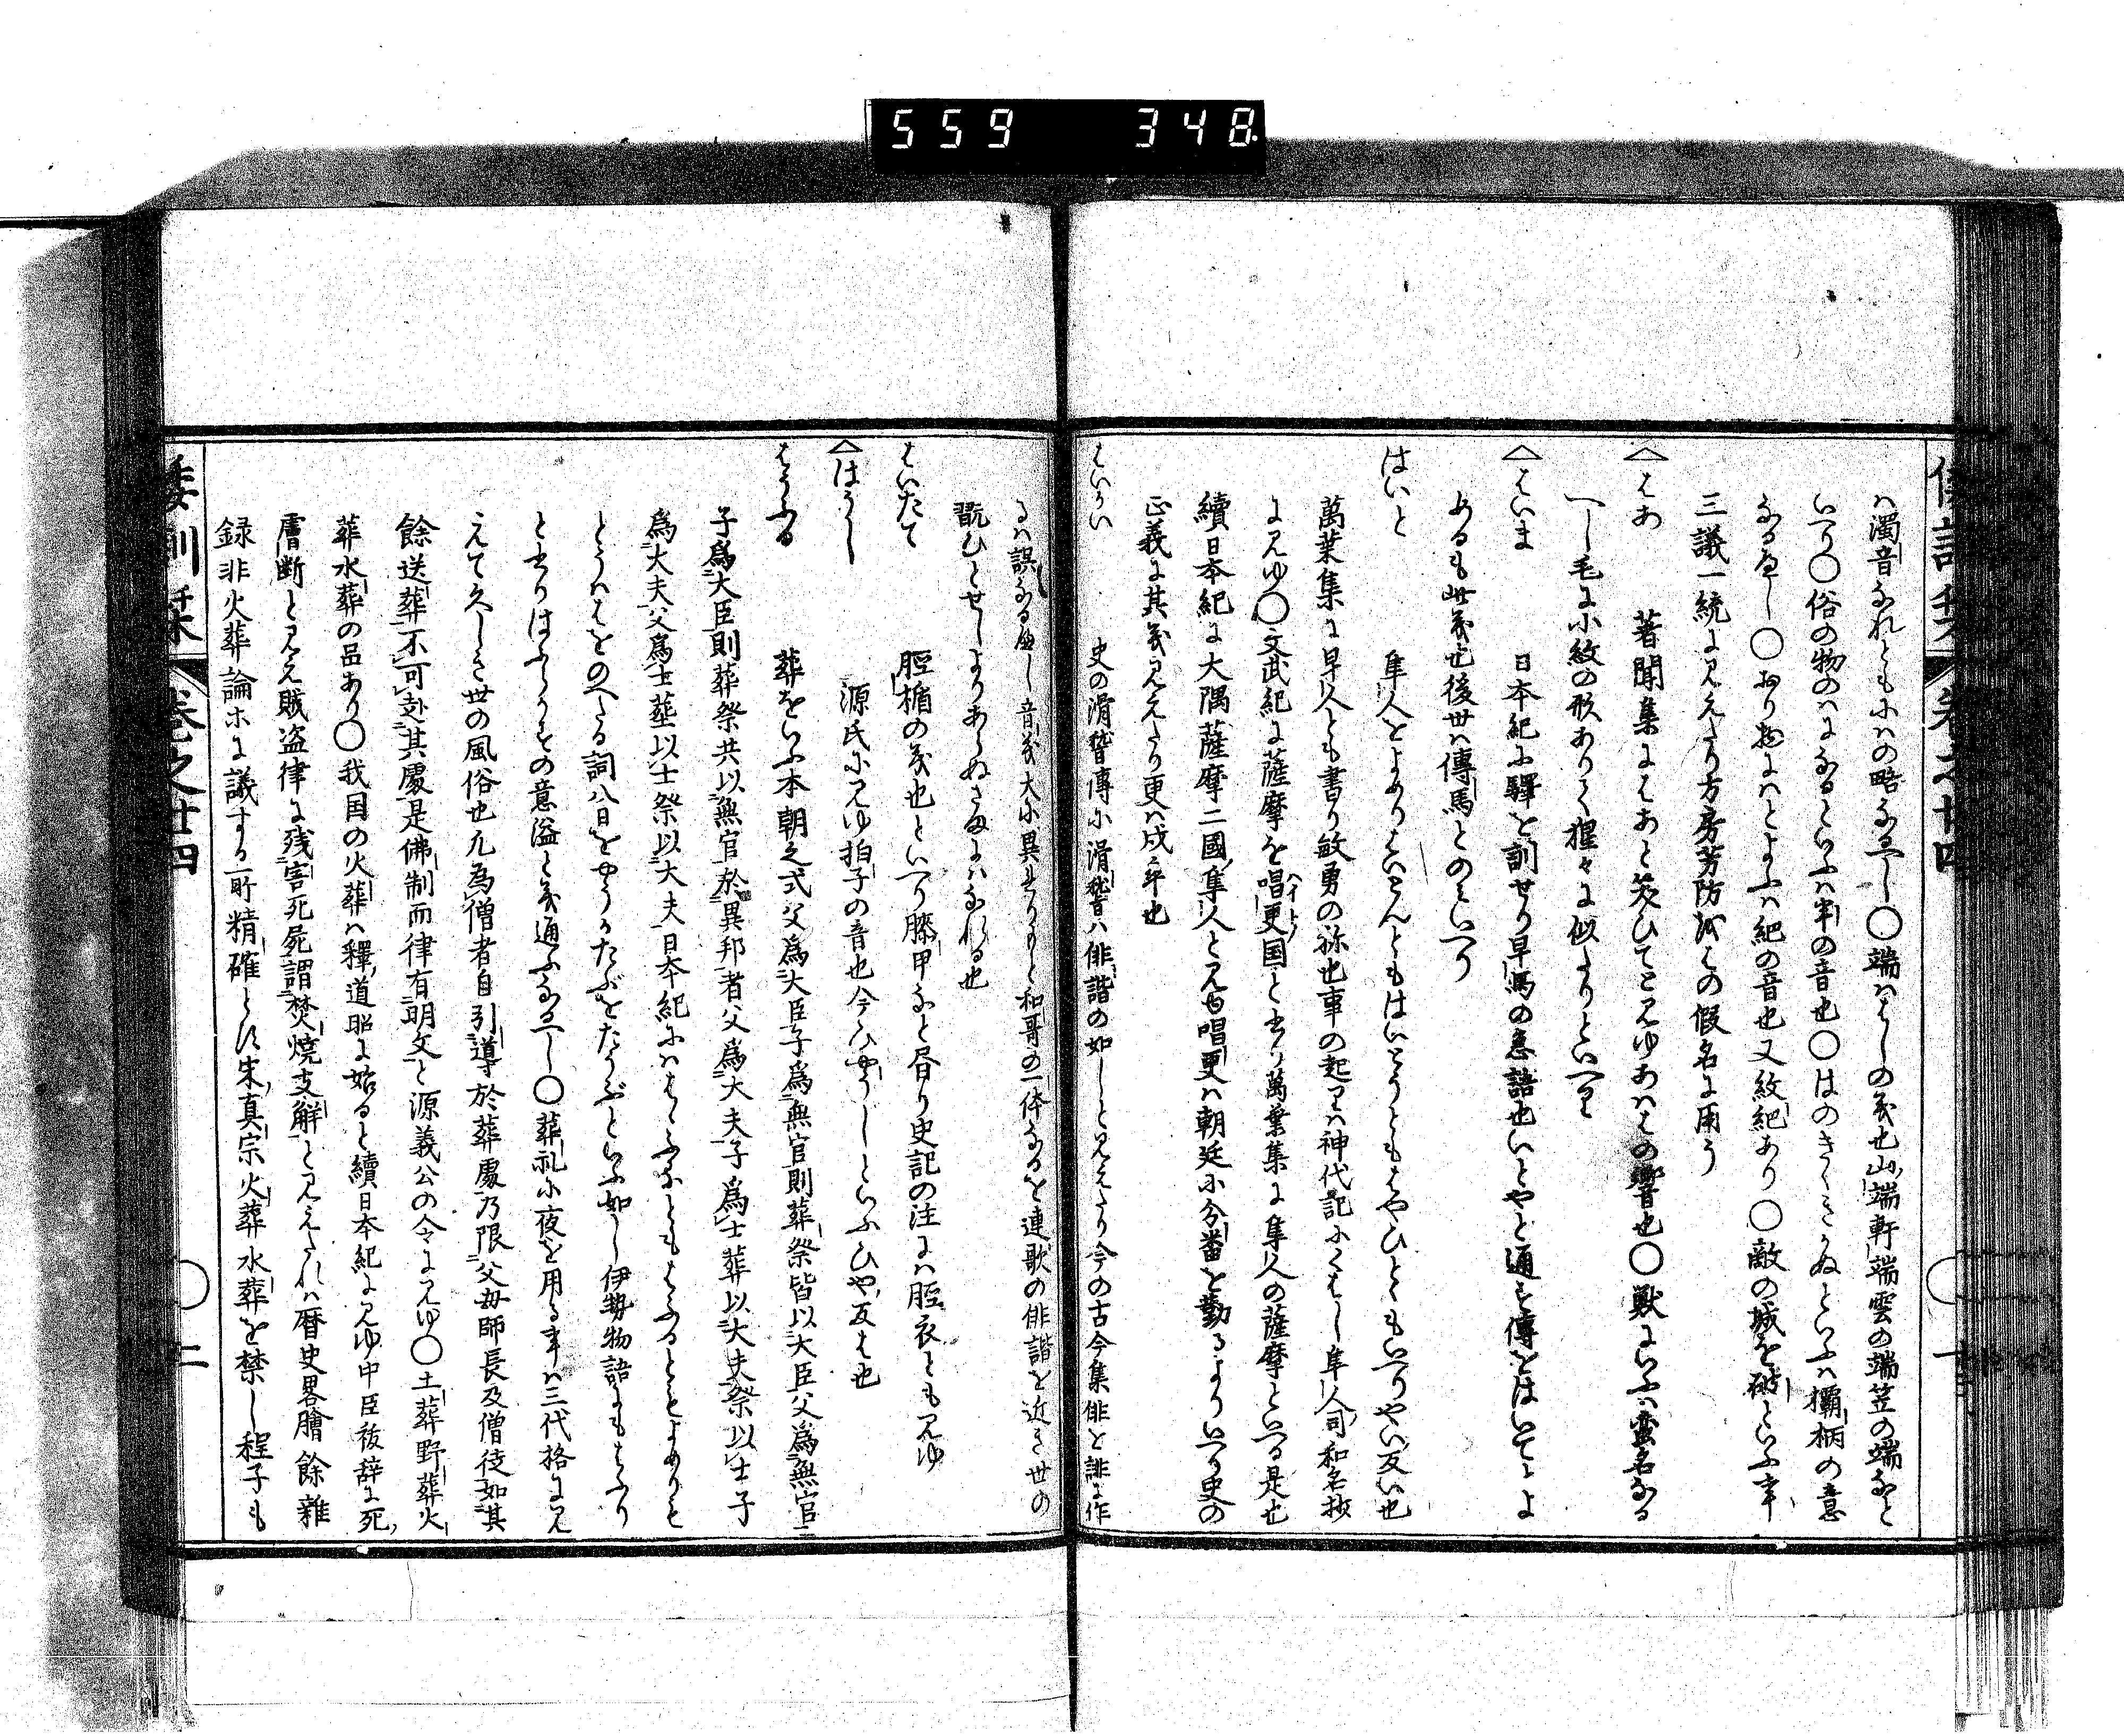 559 348
ハ濁音なれともにハの略なるへし〇端ハはしの義也山端軒端雲の端笠の端なと
いへり〇俗の物のはになるといふハ半の音也〇はのきくきかぬといふハ欛柄の意
なるへし〇おり物にハとよふハ紀の音也又紋紀あり〇敵の城を破といふ事
三議一統に見えたり方房芳防波はの假名に用う
〈はあ 著聞集にはあと笑ひてと見ゆあハはの響也〇獣にいふハ蛮名なる
へし毛に小紋の形ありて猩々に似たりといへり
〈はいま 日本紀に驛を訓せり早馬の急語也いとやと通を傳をはいてとよ
めるも此義也後世ハ傳馬とのミいへり
はいと 隼人をよめりはいとんともはいとうともはやひとともいへりやい反い也
萬葉集に早人とも書り敏勇の称也事の起りハ神代記にくはし隼人司和名抄
に見ゆ〇文武紀に薩摩を唱更国と書り萬葉集に隼人の薩摩といへる是也
續日本紀に大隅薩摩二國隼人と見ゆ唱更ハ朝廷に分番を勤るよりいへり史の
正義に其義見えたり更ハ戍卒也
はいかい 史の滑稽傳に滑稽ハ俳諧の如しと見えたり今の古今集俳を誹に作
るハ誤なるへし音義大に異なりもと和哥の一体なるを連歌の俳諧を近き世の
翫ひとせしよりあらぬさまにハなれる也
はいたて 脛楯の義也といへり膝甲なと昏り史記の注にハ脛衣とも見ゆ
〈はうし 源氏に見ゆ拍子の音也今ひやうしといふひや反は也
はうふる 葬をいふ本朝之式父為大臣子為無官則葬祭皆以大臣父為無官
子為大臣則葬祭共以無官於異邦者父為大夫子為士葬以大夫祭以士子
為大夫父為士葬以士祭以大夫日本紀にハはふふるともはふるともよめりも
とうハはをのへたる詞八日をやうかたぶをたうぶといふ如し伊勢物語にもはふり
と書りはふりすの意溢と義通ふなるへし〇葬礼に夜を用る事ハ三代格に見
えて久しき世の風俗也凡為僧者自引導於葬處乃限父毋師長及僧徒如其
餘送葬不可赴其處是佛制而律有明文と源義公の令に見ゆ〇土葬野葬火
葬水葬の品あり〇我国の火葬ハ釋道昭に始ると續日本紀に見ゆ中臣祓辞に死
膚断と見え賊盗律に残害死屍謂焚焼支解と見えたれハ暦史畧膾餘雜
録非火葬論ホに議する所精確とす宋真宗火葬水葬を禁し程子も
倭訓栞 巻之廿四 〇二